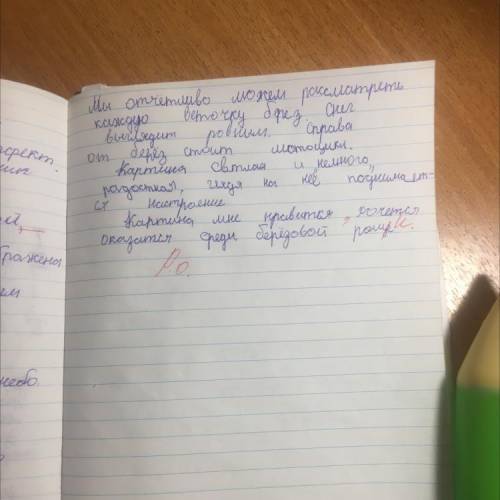 Мы отчетливо можем рассматреть
каждую веточку берез Снег
выглядит ровным. Справа
от берез стоит мотоцикл.
Картина светлая и немного
радостная, глядя на неё поднимает-
ся настроение
Картина мне нравится, хочется
оказатся среди берёзовой рощи.
эффект.
бражена
ем
небо.